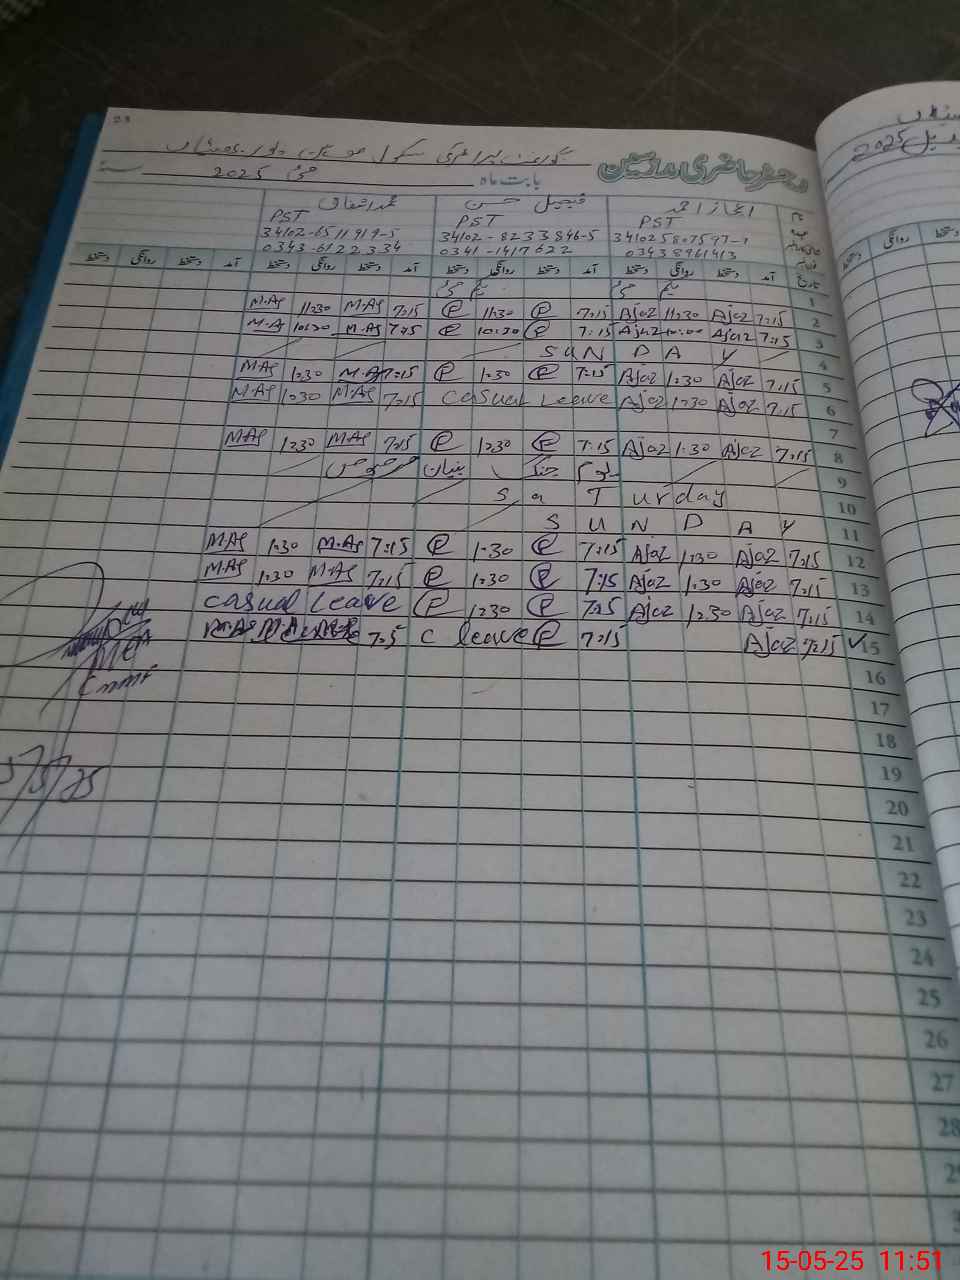 23
گورنمنٹ پرائمری سکول
دفتر حاضری ملازمین
بابت ماہ مئی 2025
اعجاز احمد
PST
341025807597-1
03438961413
فیصل حسن
PST
34102-8233846-5
0341-1417622
محمد اشفاق
PST
34102-6511919-5
0343-6122334
تاریخ آمد دستخط روانگی دستخط آمد دستخط روانگی دستخط آمد دستخط روانگی دستخط آمد دستخط روانگی دستخط
1 یکم مئی یکم مئی
2 7:15 Ajaz 11:30 Ajaz 7:15 @ 11:30 @ 7:15 M.AS 11:30 M.AS
3 7:15 Ajaz 10:00 Ajaz 7:15 @ 10:30 @ 7:15 M.AS 10:30 M.A
4 SUNDAY
5 7:15 Ajaz 1:30 Ajaz 7:15 @ 1:30 @ 7:15 M.AS 1:30 M.AS
6 7:15 Ajaz 1:30 Ajaz Casual Leave 7:15 M.AS 1:30 M.AS
7
8 7:15 Ajaz 1:30 Ajaz 7:15 @ 1:30 @ 7:15 M.AS 1:30 M.AS
9 جنگ بنیان مرصوص
10 Saturday
11 SUNDAY
12 7:15 Ajaz 1:30 Ajaz 7:15 @ 1:30 @ 7:15 M.AS 1:30 M.AS
13 7:15 Ajaz 1:30 Ajaz 7:15 @ 1:30 @ 7:15 M.AS 1:30 M.AS
14 7:15 Ajaz 1:30 Ajaz 7:15 @ 1:30 @ Casual Leave
15 7:15 Ajaz 7:15 @ C leave 7:5
16
17
18
19
20
21
22
23
24
25
26
27
28
15/5/25
2025
روانگی
دستخط
15-05-25 11:51